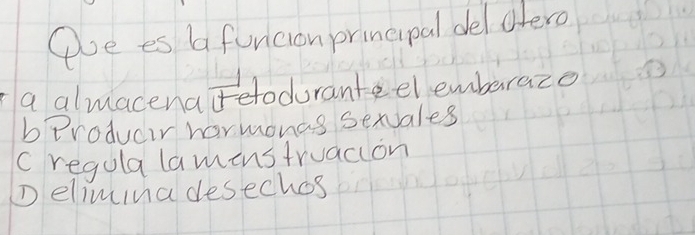 Que es la funcion principal del utero
a almacena Feto durante el embarazo
b Producir hormonas sexuales
C regula la menstruación
D elimina desechos